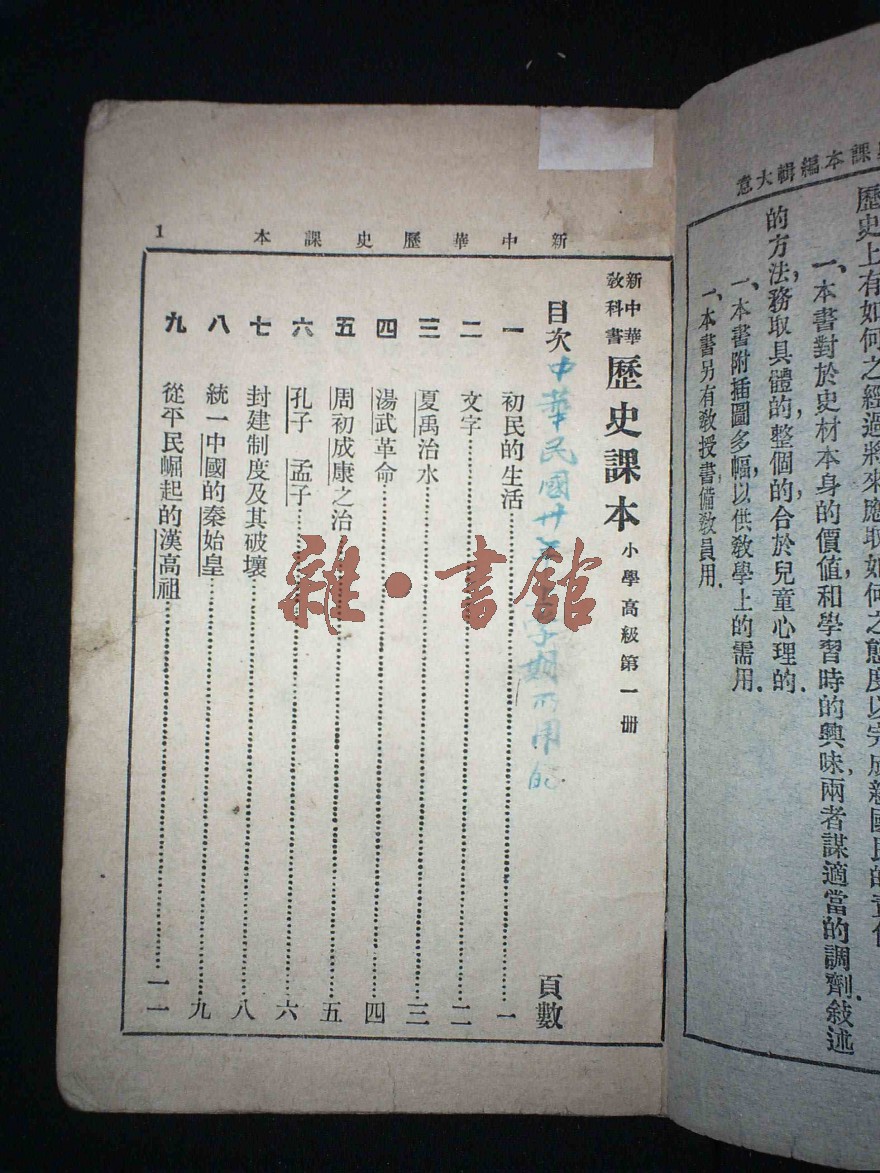 課本編輯大意
歷史上有如何之經過將來應取如何之態度以完成新國民的責任
一、本書對於史材本身的價值和學習時的興味，兩者謀適當的調劑．敍述
的方法，務取具體的，整個的合於兒童心理的．
一、本書附插圖多幅，以供教學上的需用．
一、本書另有教授書備教員用．
新中華歷史課本 1
新中華
教科書
歷史課本 小學高級第一冊
目次 頁數
中華民國廿
用
一 初民的生活………一
二 文字………二
三 夏禹治水………三
四 湯武革命………四
五 周初成康之治………五
六 孔子 孟子………六
七 封建制度及其破壞………八
八 統一中國的秦始皇………九
九 從平民崛起的漢高祖………一一
雜·書館